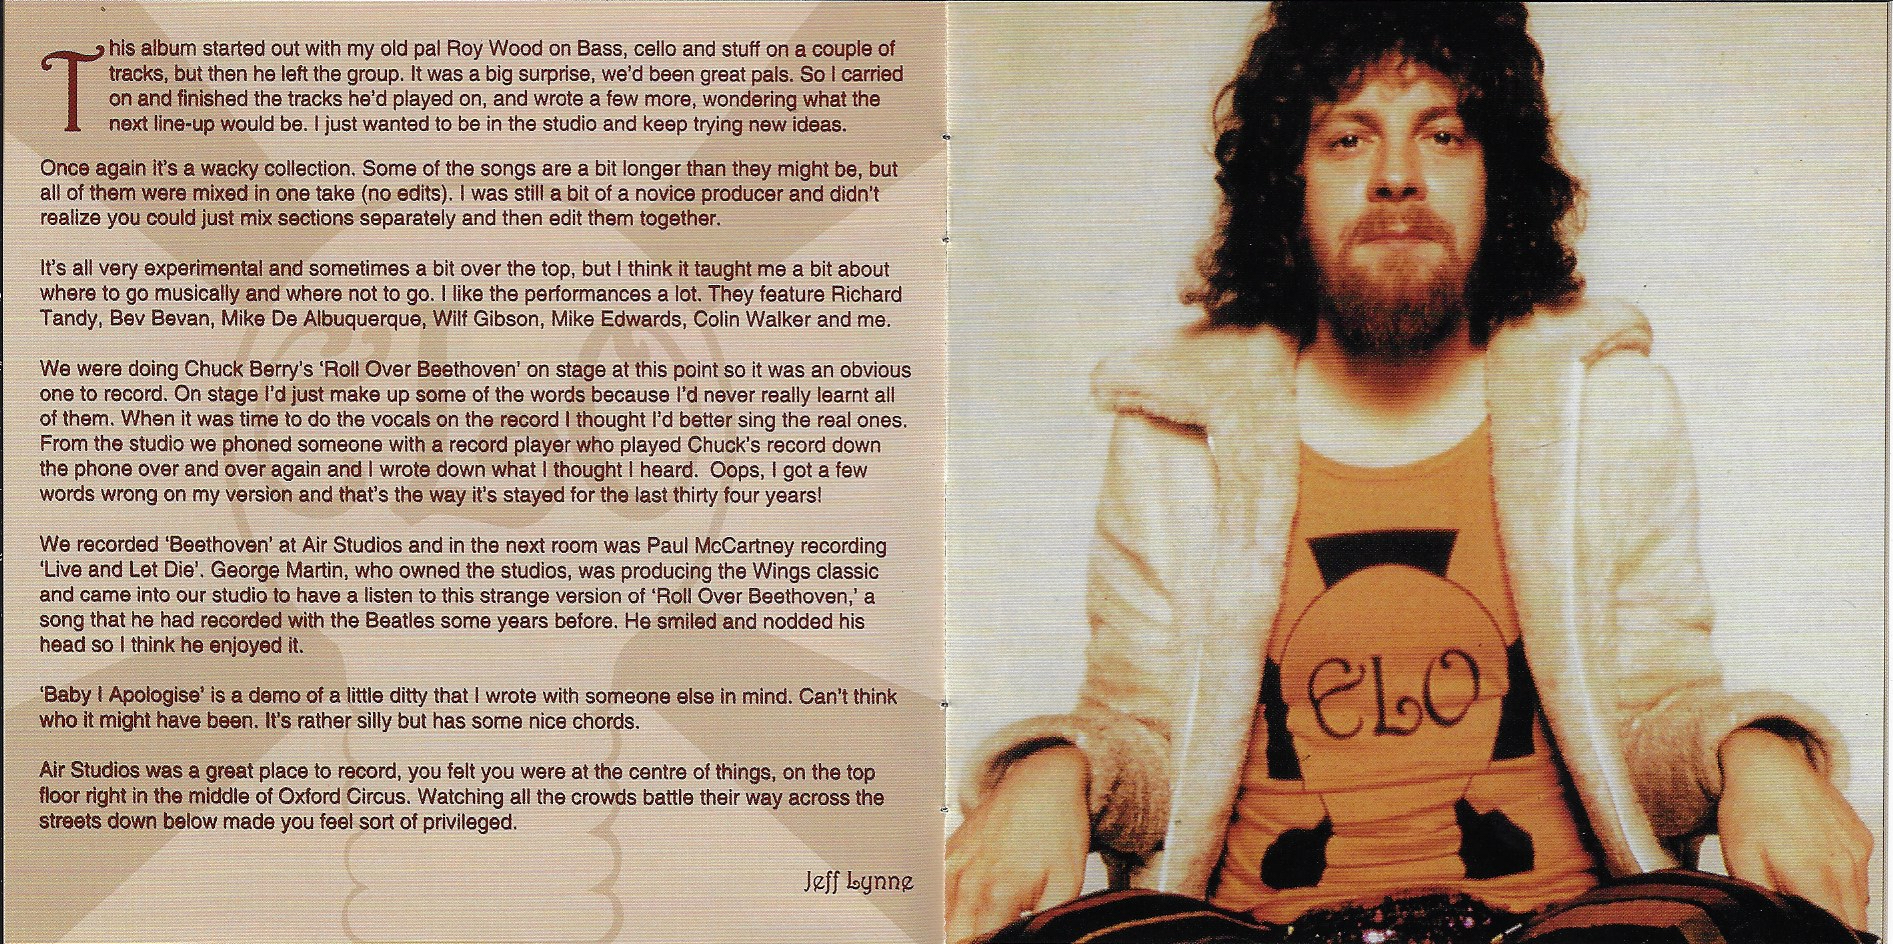 This album started out with my old pal Roy Wood on Bass, cello and stuff on a couple of
tracks, but then he left the group. It was a big surprise, we'd been great pals. So I carried
on and finished the tracks he'd played on, and wrote a few more, wondering what the
next line-up would be. I just wanted to be in the studio and keep trying new ideas.
Once again it's a wacky collection. Some of the songs are a bit longer than they might be, but
all of them were mixed in one take (no edits). I was still a bit of a novice producer and didn't
realize you could just mix sections separately and then edit them together.
It's all very experimental and sometimes a bit over the top, but I think it taught me a bit about
where to go musically and where not to go. I like the performances a lot. They feature Richard
Tandy, Bev Bevan, Mike De Albuquerque, Wilf Gibson, Mike Edwards, Colin Walker and me.
We were doing Chuck Berry's 'Roll Over Beethoven' on stage at this point so it was an obvious
one to record. On stage I'd just make up some of the words because I'd never really learnt all
of them. When it was time to do the vocals on the record I thought I'd better sing the real ones.
From the studio we phoned someone with a record player who played Chuck's record down
the phone over and over again and I wrote down what I thought I heard.  Oops, I got a few
words wrong on my version and that's the way it's stayed for the last thirty four years!
We recorded 'Beethoven' at Air Studios and in the next room was Paul McCartney recording
'Live and Let Die'. George Martin, who owned the studios, was producing the Wings classic
and came into our studio to have a listen to this strange version of 'Roll Over Beethoven,' a
song that he had recorded with the Beatles some years before. He smiled and nodded his
head so I think he enjoyed it.
'Baby I Apologise' is a demo of a little ditty that I wrote with someone else in mind. Can't think
who it might have been. It's rather silly but has some nice chords.
Air Studios was a great place to record, you felt you were at the centre of things, on the top
floor right in the middle of Oxford Circus. Watching all the crowds battle their way across the
streets down below made you feel sort of privileged.
Jeff Lynne
ELO
ELO